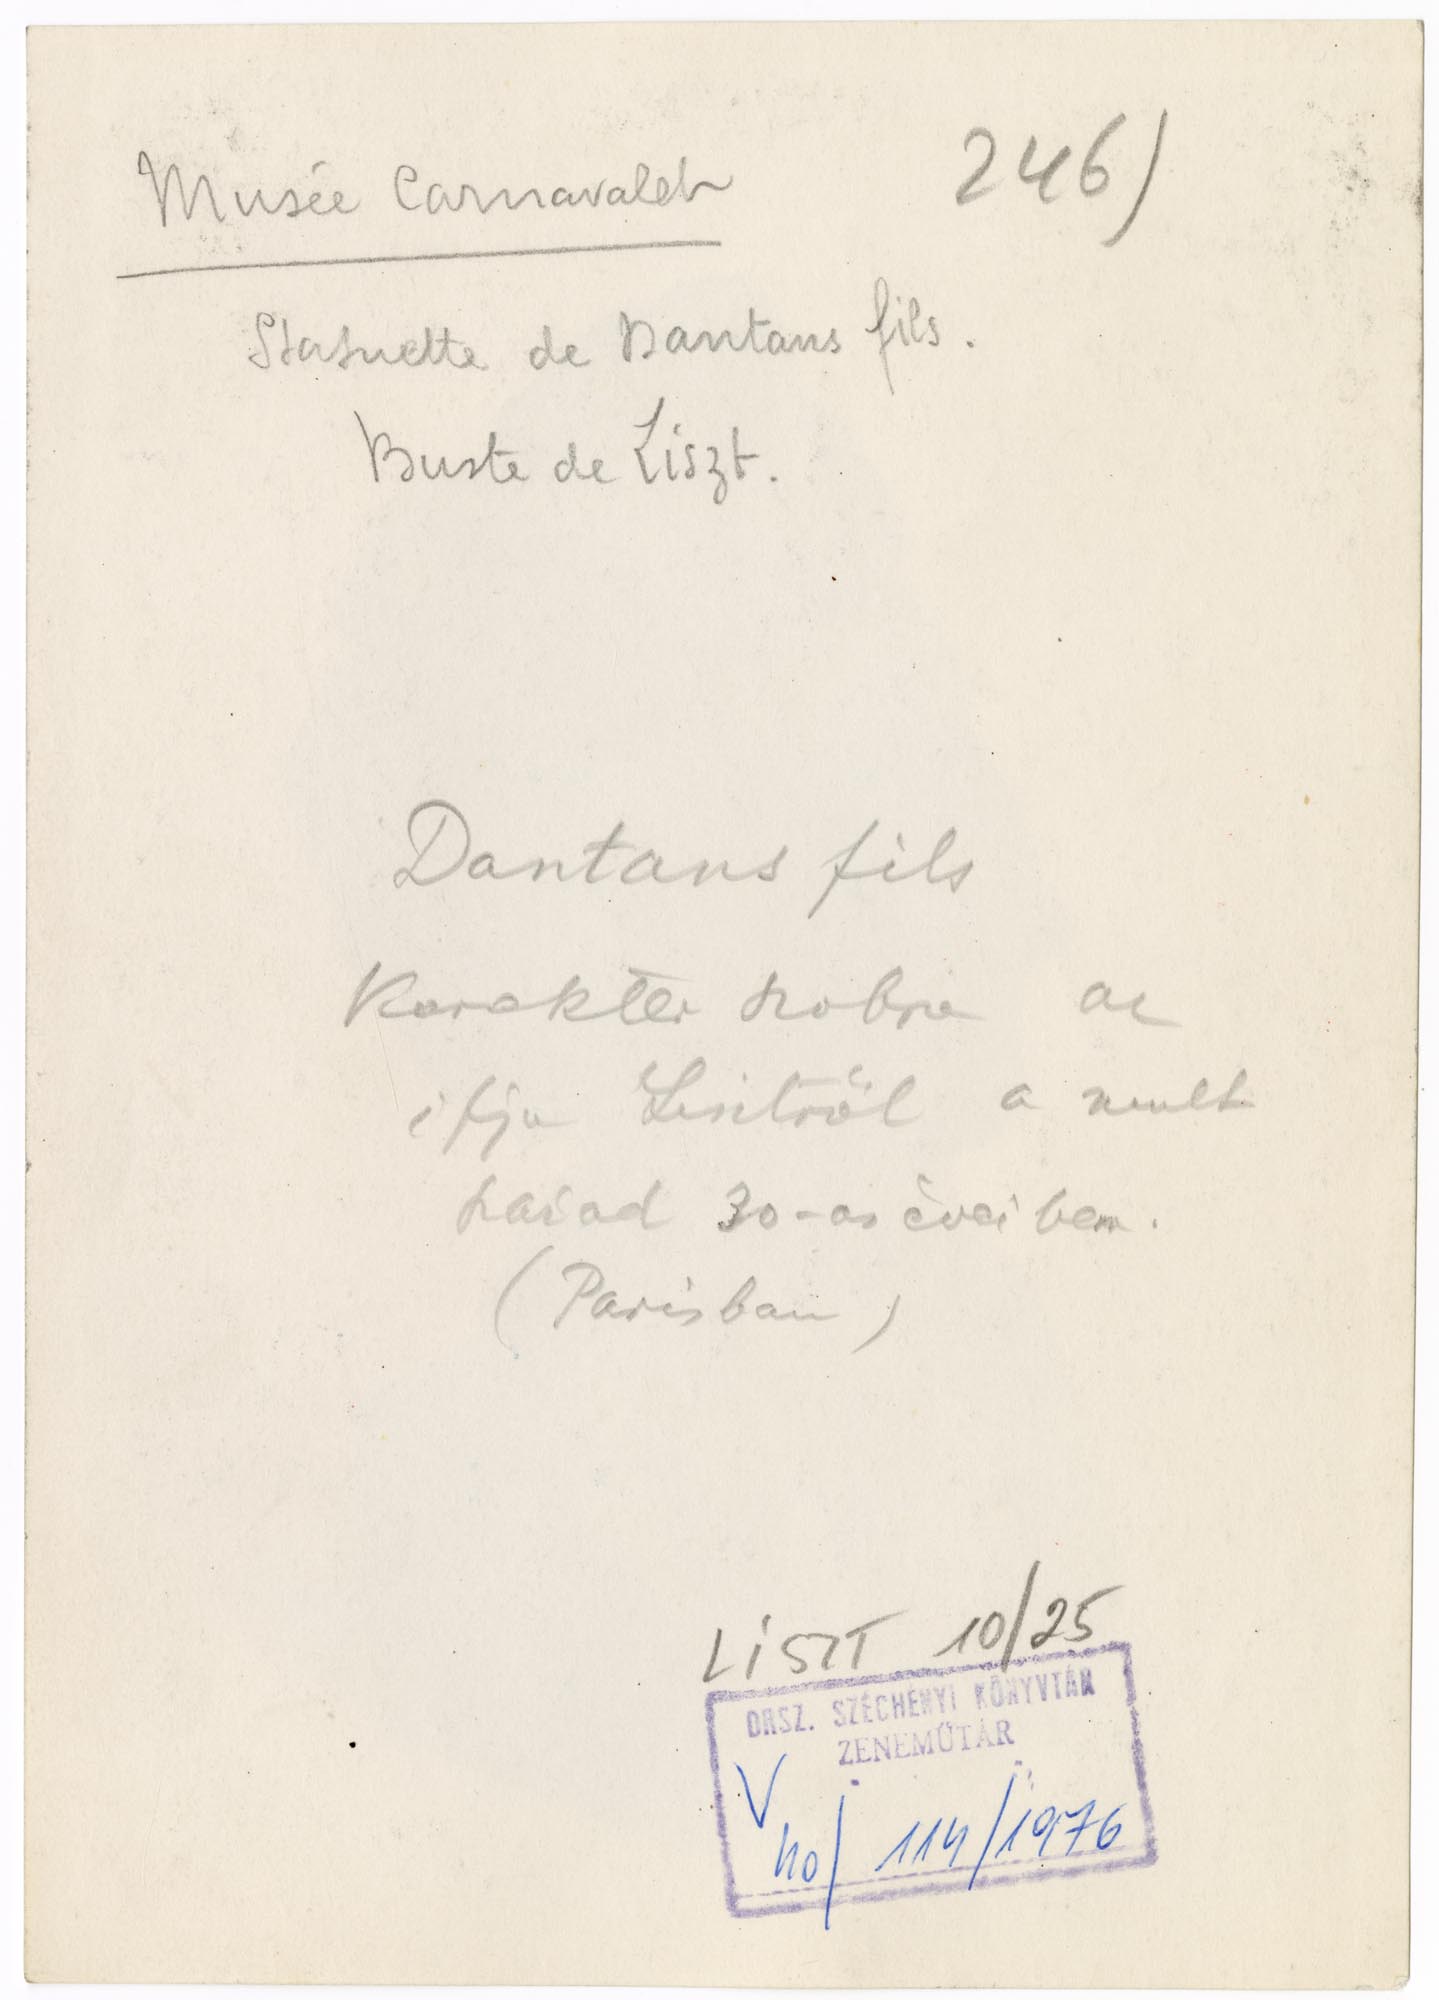 Musée Carnavalet
246)
Statuette de Dantans fils.
Buste de Liszt.
Dantans fils
Karakter szobra az
ifju Lisztről a mult
század 30-as éveiben.
(Párisban)
LISZT 10/25
ORSZ. SZÉCHÉNYI KÖNYVTÁR
ZENEMŰTÁR
V
no/ 114/1976